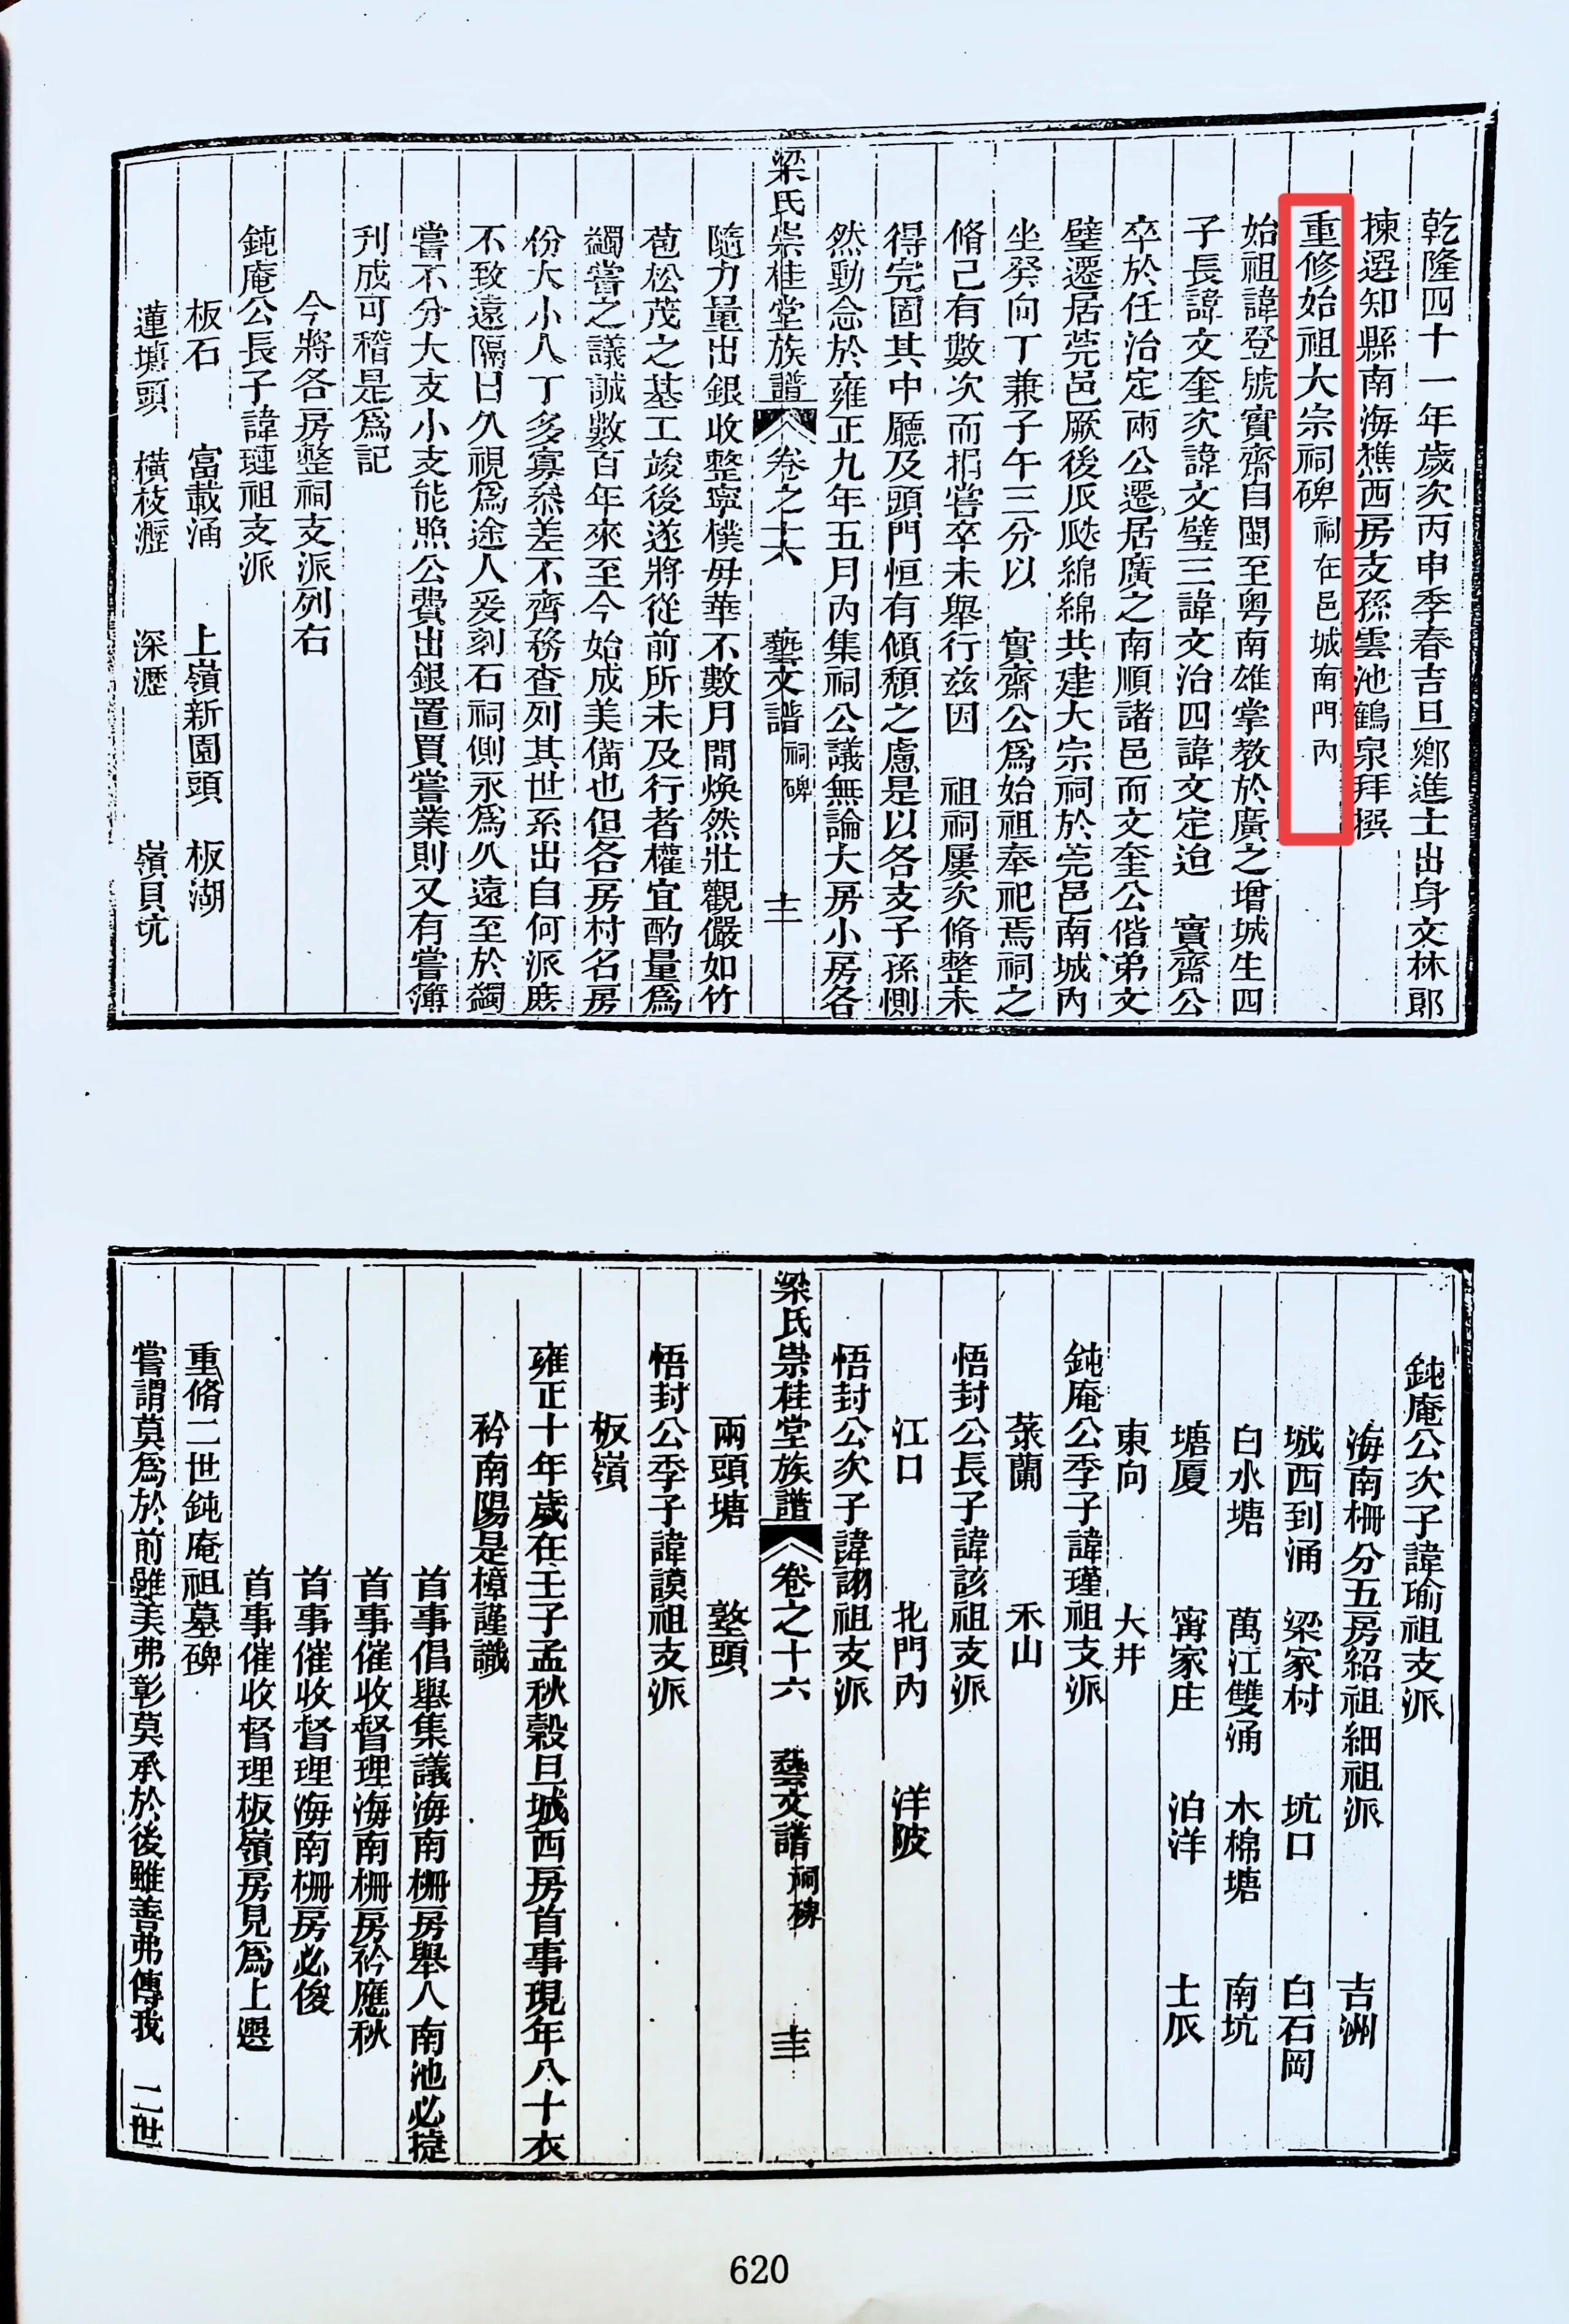 乾隆四十一年歲次丙申季春吉旦鄉進士出身文林郎
棟選知縣南海樵西房支孫雲池鶴泉拜撰
重修始祖大宗祠碑祠在邑城南門內
始祖諱登號實齋自閩至粵南雄掌教於廣之增城生四
子長諱文奎次諱文璧三諱文治四諱文定迨 實齋公
卒於任治定兩公遷居廣之南順諸邑而文奎公偕弟文
璧遷居莞邑厥後瓜瓞綿綿共建大宗祠於莞邑南城內
坐癸向丁兼子午三分以 實齋公爲始祖奉祀焉祠之
脩己有數次而捐嘗卒未舉行茲因 祖祠屢次脩整未
得完固其中廳及頭門恒有傾頹之慮是以各支子孫惻
然動念於雍正九年五月內集祠公議無論大房小房各
梁氏崇桂堂族譜 卷之十六 藝文譜 祠碑 十二
隨力量出銀收整寧樸毋華不數月間煥然壯觀儼如竹
苞松茂之基工竣後遂將從前所未及行者權宜酌量爲
蠲嘗之議誠數百年來至今始成美備也但各房村名房
份大小人丁多寡叅差不齊務查列其世系出自何派庶
不致遠隔日久視爲途人爰刻石祠側永爲久遠至於蠲
嘗不分大支小支能照公費出銀置買嘗業則又有嘗簿
刋成可稽是爲記
今將各房整祠支派列右
鈍庵公長子諱璉祖支派
板石 富載涌 上嶺新園頭 板湖
蓮塘頭 橫枝瀝 深瀝 嶺貝坑
鈍庵公次子諱瑜祖支派
海南柵分五房紹祖細祖派 吉洲
城西到涌 梁家村 坑口 白石岡
白水塘 萬江雙涌 木棉塘 南坑
塘厦 甯家庄 泊洋 土瓜
東向 大井
鈍庵公季子諱瑾祖支派
菉蘭 禾山
悟封公長子諱該祖支派
江口 北門內 洋陂
悟封公次子諱詡祖支派
梁氏崇桂堂族譜 卷之十六 藝文譜 祠碑 十三
兩頭塘 墪頭
悟封公季子諱謨祖支派
板嶺
雍正十年歲在壬子孟秋穀旦城西房首事現年八十衣
衿南陽是樟謹識
首事倡舉集議海南柵房舉人南池必㨗
首事催收督理海南柵房衿應秋
首事催收督理海南柵房必俊
首事催收督理板嶺房見爲上選
重脩二世鈍庵祖墓碑
嘗謂莫爲於前雖美弗彰莫承於後雖善弗傳我 二世
620